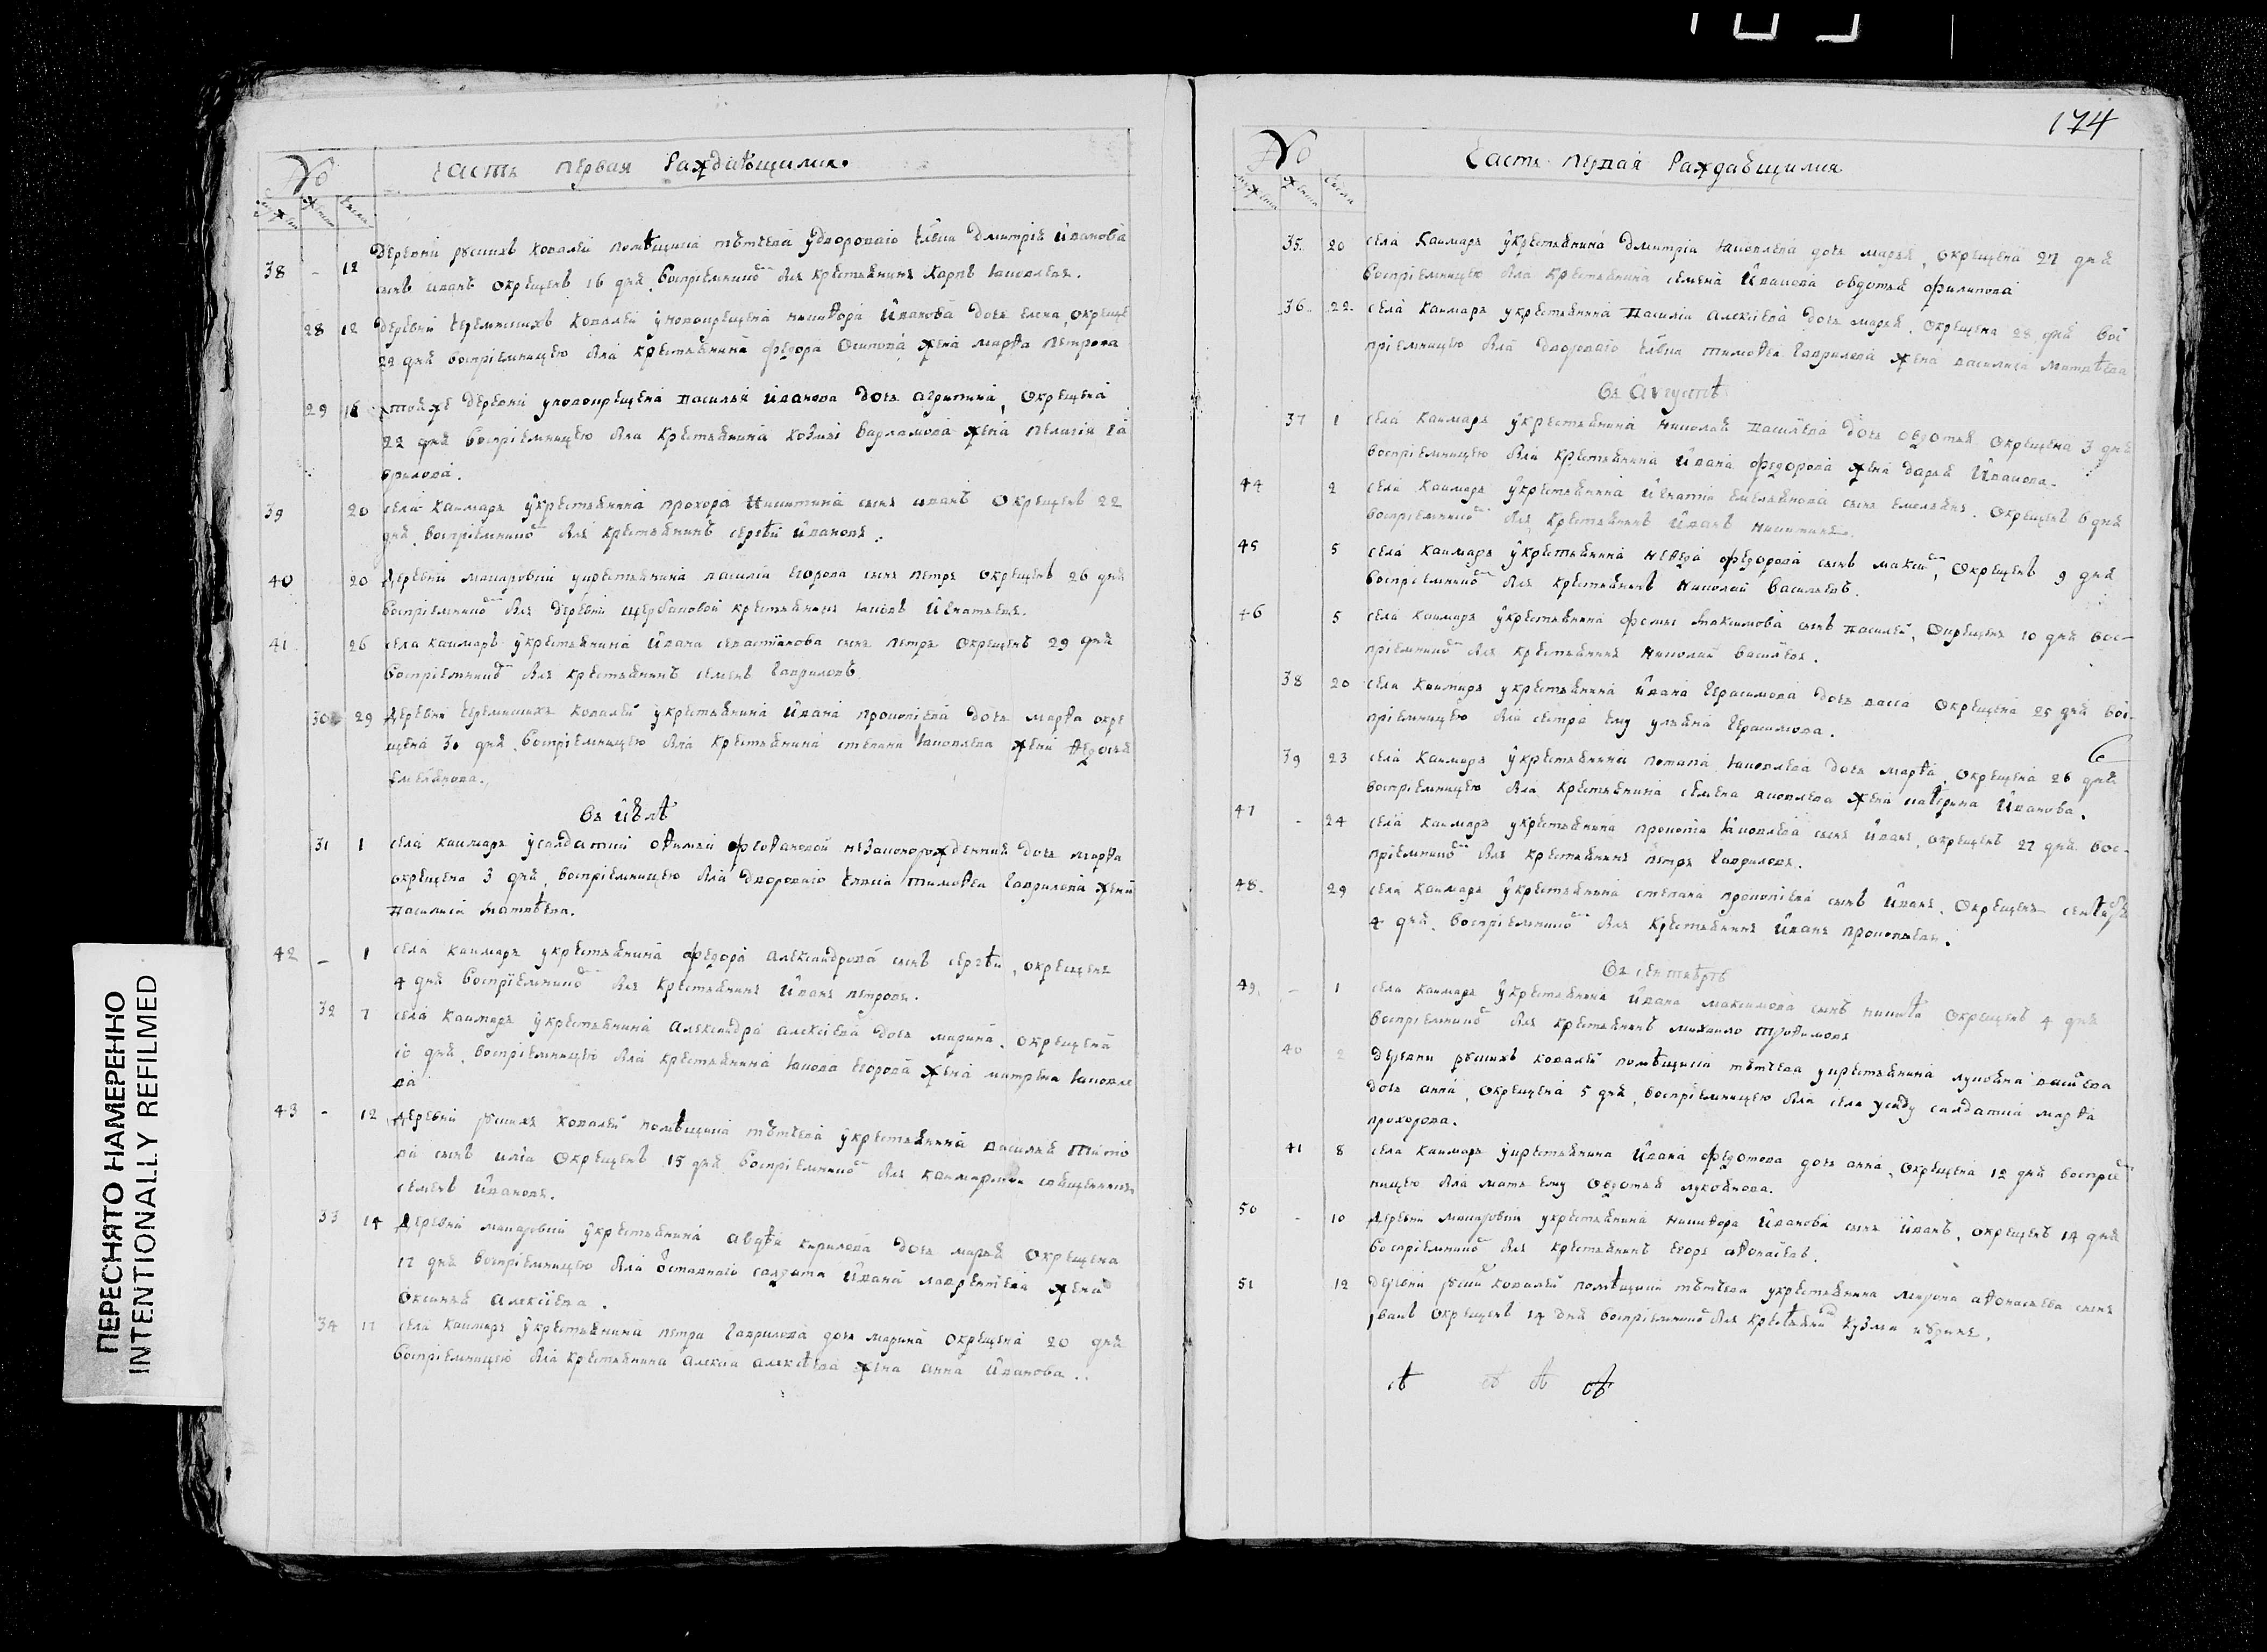 174
ПЕРЕСНЯТО НАМЕРЕННО
INTENTIONALLY REFILMED
№
часть первая Раждавщимся.
38 - 12 Деревни русихъ ковалей помѣщика удвороваго Дмитрія Иванова
сынъ иванъ окрещенъ 16 дня восприемникомъ былъ крестьянинъ карпъ яковлевъ.
28 12 деревни черемискихъ ковалей уновокрещена никифора Иванова дочь елена, окреще
22 дня восприемницею была крестьянина федора Осипова жена марфа петрова
29 16 тойже деревни уновокрещена василья иванова дочь агрипина, окрещена
22 дня восприемницею была крестьянина козмы варламова жена пелагия га
врилова.
39 20 села каимаръ укрестьянина прохора никитина сынъ иванъ окрещенъ 22
дня восприемникомъ былъ крестьянинъ сергѣй ивановъ.
40 20 деревни макаровки укрестьянина василія егорова сынъ петръ окрещенъ 26 дня
восприемникомъ былъ деревни щербаковой крестьянинъ яковъ игнатьевъ.
41 26 села каимаръ укрестьянина ивана севастьянова сынъ петръ окрещенъ 29 дня
восприемникомъ былъ крестьянинъ семенъ гавриловъ
30 29 деревни черемискихъ ковалей укрестьянина ивана прокопіева дочь марфа окре
щена 30 дня восприемницею была крестьянина степана яковлева жена федосья
емельянова.
Въ июлѣ
31 1 села каимаръ усалдатки офимьи феофановой незаконорожденная дочь марфа
окрещена 3 дня, восприемницею была двороваго тимофея гаврилова жена
василиса матвѣева.
42 - 1 села каимаръ укрестьянина федора александрова сынъ сергѣй, окрещенъ
4 дня восприемникомъ былъ крестьянинъ иванъ петровъ.
32 7 села каимаръ укрестьянина александра алексіева дочь марина, окрещена
10 дня, восприемницею была крестьянина якова егорова жена матрена яковле
ва
43 - 12 деревни русихъ ковалей помѣщика укрестьянина василья тито
ва сынъ илія окрещенъ 15 дня восприемникомъ былъ каимарскои священникъ
семенъ ивановъ.
33 14 деревни макаровки укрестьянина авдѣя кирилова дочь марья окрещена
17 дня восприемницею была отставнаго салдата ивана лаврентьева жена
оксинья алексіева.
34 17 села каимаръ укрестьянина петра гаврилова дочь марина окрещена 20 дня
восприемницею была крестьянина алексія алексѣева жена анна иванова..
№
часть первая Раждавщимся
35 20 села каимаръ укрестьянина дмитрія яковлева дочь марья, окрещена 27 дня
восприемницею была крестьянина семена иванова овдотья филипова
36 22 села каимаръ укрестьянина василія алексіева дочь марья, окрещена 28 дня вос
приемницею была двороваго тимофея гаврилова жена василиса матвѣева
Въ Августѣ
37 1 села каимаръ укрестьянина николая василева дочь овдотья окрещена 3 дня
восприемницею была крестьянина ивана федорова жена дарья иванова.
44 2 села каимаръ укрестьянина игнатія емельянова сынъ емельянъ, окрещенъ 6 дня
восприемникомъ былъ крестьянинъ иванъ никитинъ.
45 5 села каимаръ укрестьянина федорова сынъ максимъ, окрещенъ 9 дня
восприемникомъ былъ крестьянинъ николай васильевъ.
46 5 села каимаръ укрестьянина фомы максимова сынъ василей, окрещенъ 10 дня вос-
приемникомъ былъ крестьянинъ николай васильевъ.
38 20 села каимаръ укрестьянина ивана герасимова дочь васса окрещена 25 дня вос-
приемницею была сестра ему ульяна герасимова.
39 23 села каимаръ укрестьянина потапа яковлева дочь марфа, окрещена 26 дня
восприемницею была крестьянина семена яковлева жена катерина иванова.
47 - 24 села каимаръ укрестьянина прокопія яковлева сынъ иванъ, окрещенъ 27 дня вос-
приемникомъ былъ крестьянинъ петръ гавриловъ.
48. 29 села каимаръ укрестьянина степана прокопіева сынъ иванъ, окрещенъ сентября
4 дня, восприемникомъ былъ крестьянинъ иванъ прокопьевъ.
Въ сентябрѣ
49. - 1 села каимаръ укрестьянина ивана максимова сынъ никита окрещенъ 4 дня
восприемникомъ былъ крестьянинъ михаило трофимовъ
40 2 деревни русихъ ковалей помѣщика укрестьянина лукояна васильева
дочь анна, окрещена 5 дня, восприемницею была села салдатка марфа
прохорова.
41 8 села каимаръ укрестьянина ивана федотова дочь анна, окрещена 12 дня восприем
ницею была мать ему овдотья лукоянова.
50 - 10 деревни макаровки укрестьянина никифора иванова сынъ иванъ, окрещенъ 14 дня
восприемникомъ былъ крестьянинъ егоръ афонасіевъ.
51 12 деревни русихъ ковалей помѣщика укрестьянина мирона афонасьева сынъ
иванъ окрещенъ 14 дня восприемникомъ былъ крестьянинъ кузма